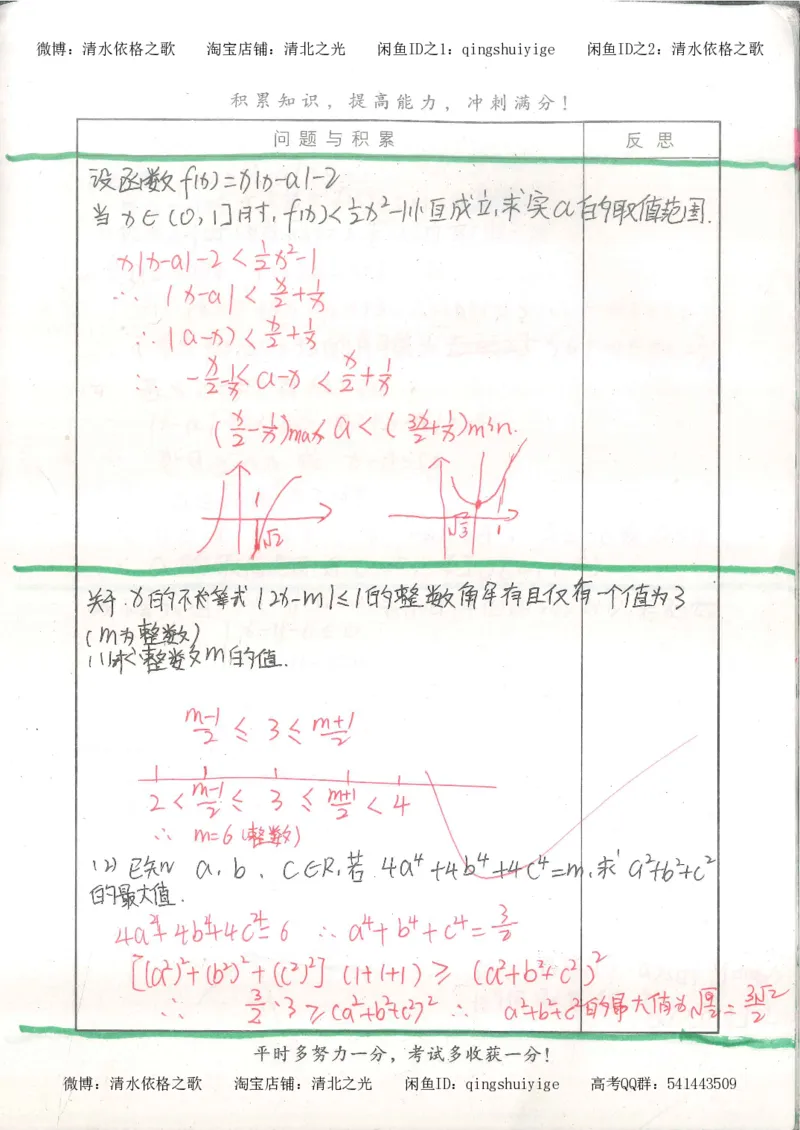 微博：清水依格之歌 淘宝店铺：清北之光 闲鱼ID之1：qingshuiyige 闲鱼ID之2：清水依格之歌
积累知识，提高能力，冲刺满分！
问题与积累 反思
设函数f(x)=x|x-a|-2
当x∈(0,1]时,f(x)<½x²-1恒成立,求实a的取值范围.
x|x-a|-2<½x²-1
∴ |x-a|<x/2+1/x
∴ |a-x)<x/2+1/x
∴ -x/2-1/x<a-x<x/2+1/x
(x/2-1/x)max<a<(3x/2+1/x)min.
1 √2 √2/3 1
关于x的不等式|2x-m|≤1的整数解存在且仅有一个值为3
(m为整数)
(1)求整数m的值.
(m-1)/2≤3≤(m+1)/2
2<(m-1)/2≤3≤(m+1)/2<4
∴ m=6(整数)
(2)已知a,b、c∈R,若4a⁴+4b⁴+4c⁴=m,求a²+b²+c²
的最大值.
4a⁴+4b⁴+4c⁴=6 ∴a⁴+b⁴+c⁴=3/2
[(a²)²+(b²)²+(c²)²](1+1+1)≥(a²+b²+c²)²
∴ 3/2·3≥(a²+b²+c²)² ∴ a²+b²+c²的最大值为√(9/2)=3√2/2
平时多努力一分，考试多收获一分！
微博：清水依格之歌 淘宝店铺：清北之光 闲鱼ID：qingshuiyige 高考QQ群：541443509